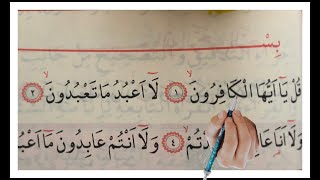 بِسْ
قُلْ يَٓا اَيُّهَا الْكَافِرُونَۙ ﴿١﴾ لَٓا اَعْبُدُ مَا تَعْبُدُونَۙ ﴿٢﴾
وَلَٓا اَنَا۬ عَا دْتُمْۙ ﴿٤﴾ وَلَٓا اَنْتُمْ عَابِدُونَ مَٓا اَعْبُ